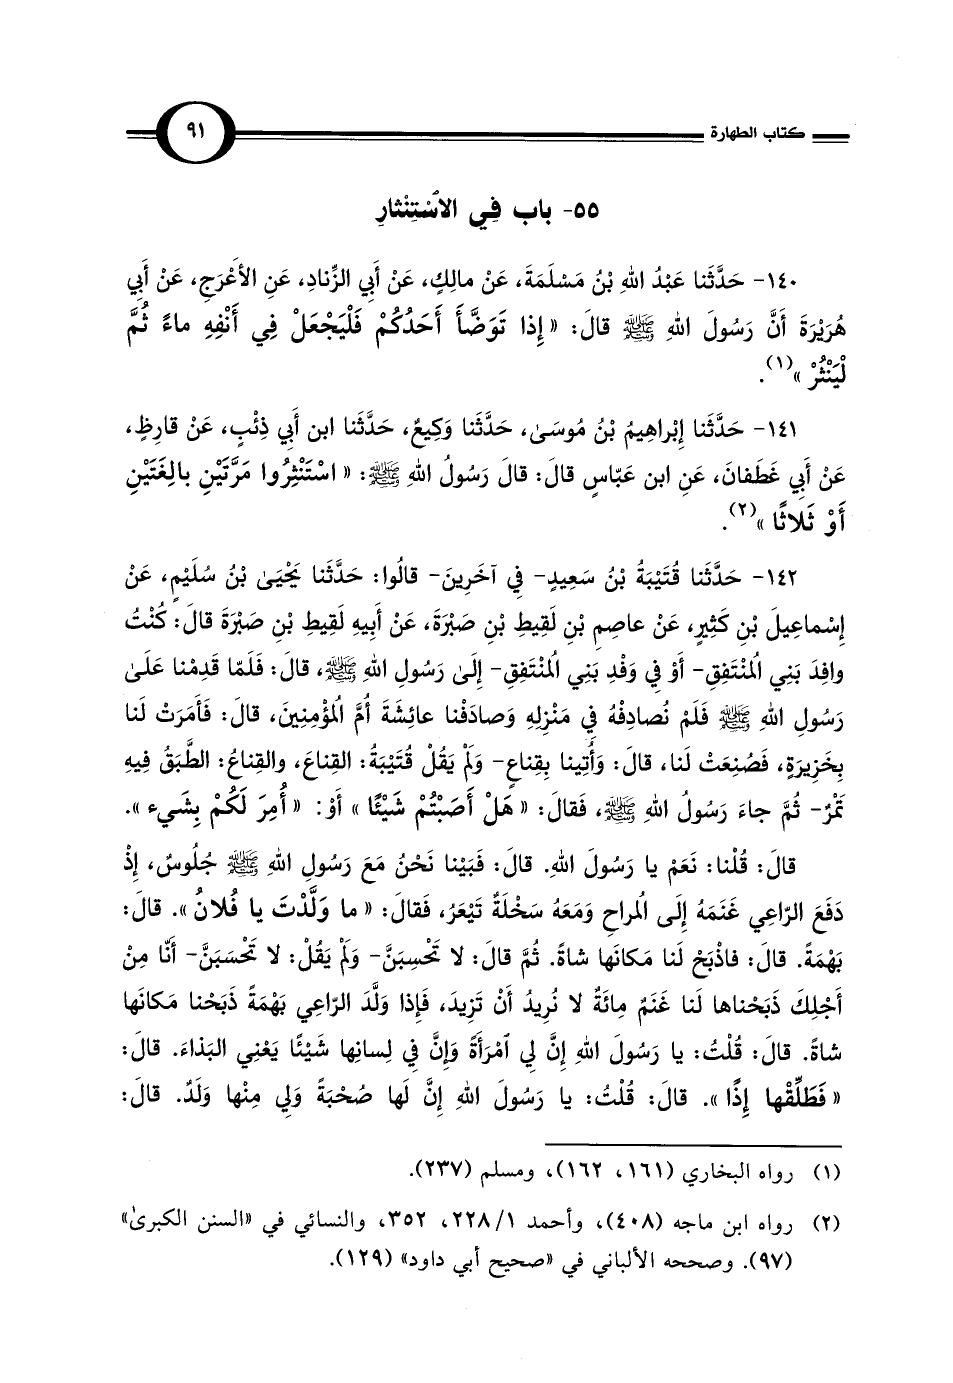 كتاب الطهارة ٩١
٥٥- باب فِي الاسْتِنْثارِ
١٤٠- حَدَّثَنا عَبْدُ اللهِ بْنُ مَسْلَمَةَ، عَنْ مالِكٍ، عَنْ أَبِي الزِّنادِ، عَنِ الأَعْرَجِ، عَنْ أَبِي
هُرَيْرَةَ أَنَّ رَسُولَ اللهِ ﷺ قالَ: « إِذا تَوَضَّأَ أَحَدُكُمْ فَلْيَجْعَلْ فِي أَنْفِهِ ماءً ثُمَّ
لْيَنْثُرْ »(١).
١٤١- حَدَّثَنا إِبْراهِيمُ بْنُ مُوسَىٰ، حَدَّثَنا وَكِيعٌ، حَدَّثَنا ابن أَبِي ذِئْبٍ، عَنْ قارِظٍ،
عَنْ أَبِي غَطَفانَ، عَنِ ابن عَبّاسٍ قالَ: قالَ رَسُولُ اللهِ ﷺ: « اسْتَنْثِرُوا مَرَّتَيْنِ بالِغَتَيْنِ
أَوْ ثَلاثًا »(٢).
١٤٢- حَدَّثَنا قُتَيْبَةُ بْنُ سَعِيدٍ- فِي آخَرِينَ- قالُوا: حَدَّثَنا يَحْيَىٰ بْنُ سُلَيْمٍ، عَنْ
إِسْماعِيلَ بْنِ كَثِيرٍ، عَنْ عاصِمِ بْنِ لَقِيطِ بْنِ صَبْرَةَ، عَنْ أَبِيهِ لَقِيطِ بْنِ صَبْرَةَ قالَ: كُنْتُ
وافِدَ بَنِي الُمنْتَفِقِ- أَوْ فِي وَفْدِ بَنِي الُمنْتَفِقِ- إِلَىٰ رَسُولِ اللهِ ﷺ، قالَ: فَلَمّا قَدِمْنا عَلَىٰ
رَسُولِ اللهِ ﷺ فَلَمْ نُصادِفْهُ فِي مَنْزِلِهِ وَصادَفْنا عائِشَةَ أُمَّ الُمؤْمِنِينَ، قالَ: فَأَمَرَتْ لَنا
بِخَزِيرَةٍ، فَصُنِعَتْ لَنا، قالَ: وَأُتِينا بِقِناعٍ- وَلَمْ يَقُلْ قُتَيْبَةُ: القِناعَ، والقِناعُ: الطَّبَقُ فِيهِ
تَمْرٌ- ثُمَّ جاءَ رَسُولُ اللهِ ﷺ، فَقالَ: « هَلْ أَصَبْتُمْ شَيْئًا » أَوْ: « أُمِرَ لَكُمْ بِشَيء ».
قالَ: قُلْنا: نَعَمْ يا رَسُولَ اللهِ. قالَ: فَبَيْنا نَحْنُ مَعَ رَسُولِ اللهِ ﷺ جُلُوسٌ، إِذْ
دَفَعَ الرّاعِي غَنَمَهُ إِلَى الُمراحِ وَمَعَهُ سَخْلَةٌ تَيْعَرُ، فَقالَ: « ما وَلَّدْتَ يا فُلانُ ». قالَ:
بَهْمَةً. قالَ: فاذْبَحْ لَنا مَكانَها شاةً. ثُمَّ قالَ: لا تَحْسِبَنَّ- وَلَمْ يَقُلْ: لا تَحْسَبَنَّ- أَنّا مِنْ
أَجْلِكَ ذَبَحْناها لَنا غَنَمٌ مِائَةٌ لا نُرِيدُ أَنْ تَزِيدَ، فَإِذا وَلَّدَ الرّاعِي بَهْمَةً ذَبَحْنا مَكانَها
شاةً. قالَ: قُلْتُ: يا رَسُولَ اللهِ إِنَّ لِي ٱمْرَأَةً وَإِنَّ فِي لِسانِها شَيْئًا يَعْنِي البَذاءَ. قالَ:
« فَطَلِّقْها إِذًا ». قالَ: قُلْتُ: يا رَسُولَ اللهِ إِنَّ لَها صُحْبَةً وَلِي مِنْها وَلَدٌ. قالَ:
(١) رواه البخاري (١٦١، ١٦٢)، ومسلم (٢٣٧).
(٢) رواه ابن ماجه (٤٠٨)، وأحمد ١/ ٢٢٨، ٣٥٢، والنسائي في «السنن الكبرىٰ»
(٩٧). وصححه الألباني في «صحيح أبي داود» (١٢٩).